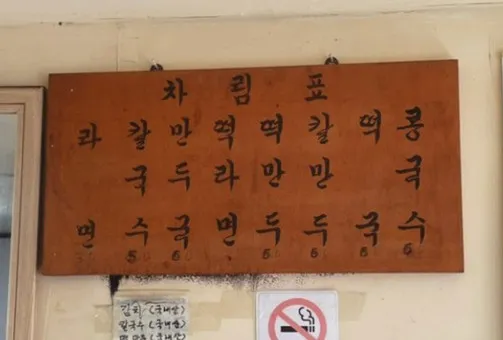 차림표
라면
칼국수
만두국
떡라면
떡만두
칼만두
떡국
콩국수
김치 (국내산)
칼국수 (국내산)